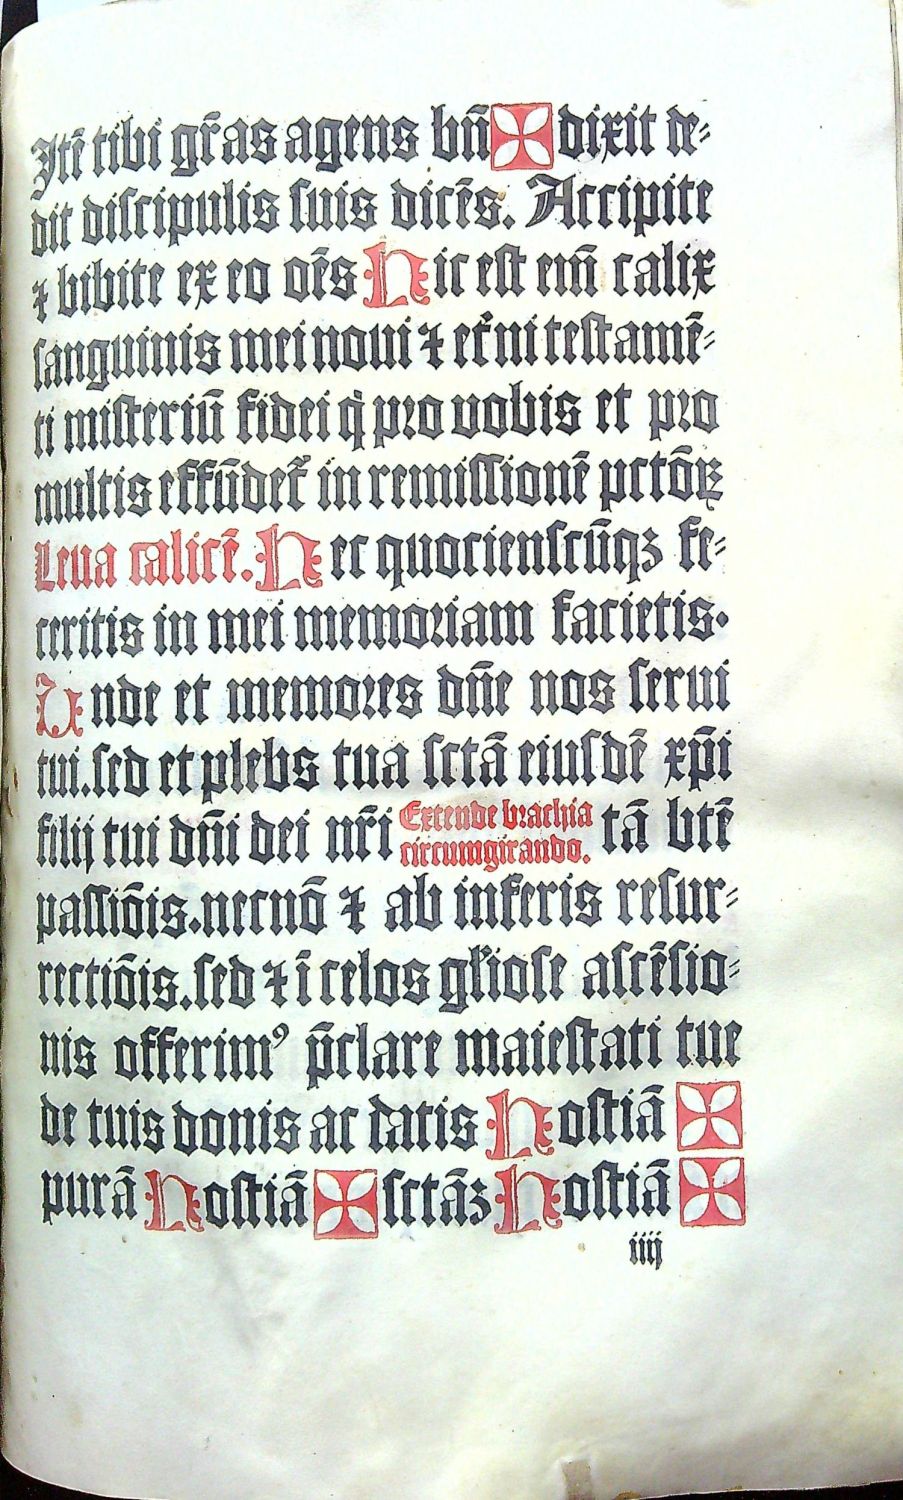 Itẽ tibi gr̃as agens bñ ✠ dixit de⸗
dit diſcipulis ſuis dicẽs. Accipite
⁊ bibite ex eo oẽs Hic eſt em̃ calix
ſanguinis mei noui ⁊ et̾ni teſtamẽ⸗
ti miſteriũ fidei q̇ pro vobis et pro
multis effũdet̾ in remiſſionẽ pctõꝝ
Leua calicẽ. Hec quocienſcũqꝫ fe⸗
ceritis in mei memoriam facietis.
Unde et memores dñe nos ſerui
tui.ſed et plebs tua ſctã eiuſdẽ xp̃i
filij tui dñi dei nr̃i Extende brachia
circumgirando. tã btẽ
paſſiõis.necnõ ⁊ ab inferis reſur⸗
rectiõis.ſed ⁊ ĩ celos gl̾ioſe aſcẽſio⸗
nis offerimꝰ p̃clare maieſtati tue
de tuis donis ac datis Hoſtiã ✠
purã Hoſtiã ✠ ſctãꝫ Hoſtiã ✠
iiij